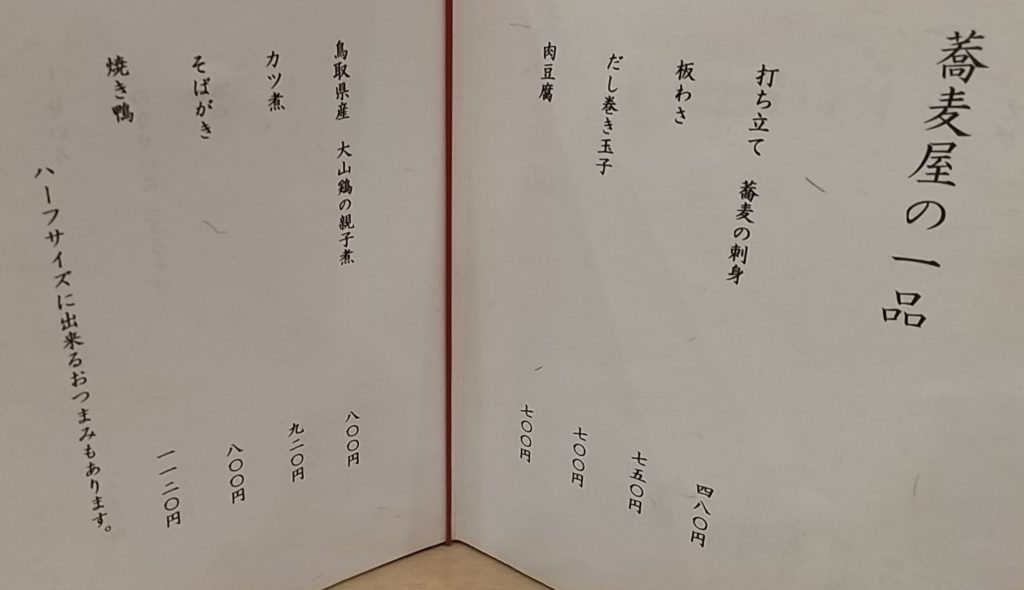 蕎麦屋の一品
打ち立て 蕎麦の刺身 四八〇円
板わさ 七五〇円
だし巻き玉子 七〇〇円
肉豆腐 七〇〇円
鳥取県産 大山鶏の親子煮 八〇〇円
カツ煮 九二〇円
そばがき 八〇〇円
焼き鴨 一一二〇円
ハーフサイズに出来るおつまみもあります。